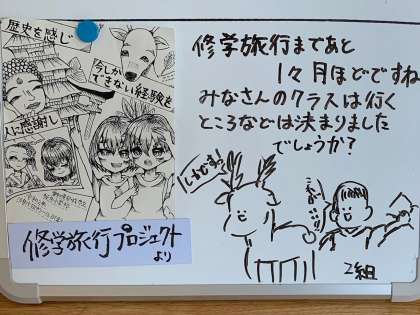 歴史を感じ
今しか
できない経験を
人に感謝し
修学旅行プロジェクト
より
修学旅行まであと
1ヶ月ほどですね
みなさんのクラスは行く
ところなどは決まりました
でしょうか?
2組